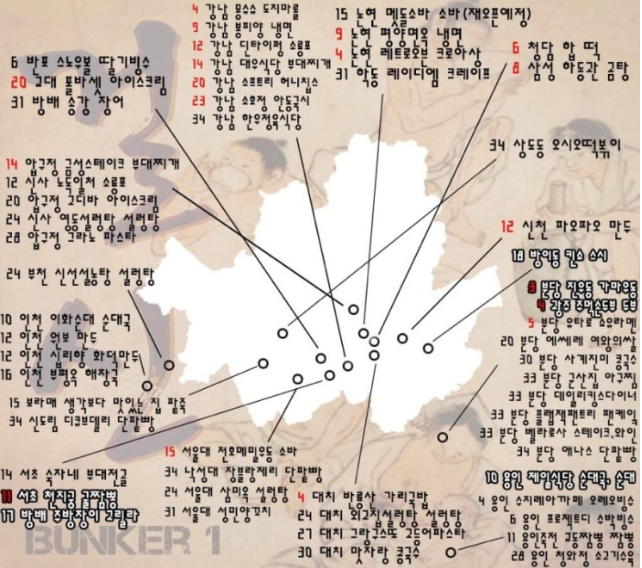 4 강남 뭉슈슈 도지마롤
9 강남 봉피양 냉면
12 강남 딘타이펑 소룡포
14 강남 대우식당 부대찌개
20 강남 소프트리 허니칩스
23 강남 소호정 안동국시
34 강남 한우정육식당
15 논현 메밀소바 소바(재오픈예정)
9 논현 평양면옥 냉면
4 논현 레트로오븐 크로아상
31 학동 레이디엠 크레이프
6 청담 합 떡
8 삼성 하동관 곰탕
6 반포 스노우볼 딸기빙수
20 고대 폴바셋 아이스크림
31 방배 송강 장어
34 상도동 오시오떡볶이
14 압구정 금성스테이크 부대찌개
12 신사 노독일처 소룡포
20 압구정 고디바 아이스크림
24 신사 영동설렁탕 설렁탕
28 압구정 그라노 파스타
12 신천 파오파오 만두
18 방이동 킨스 소시
24 부천 신선설농탕 설렁탕
3 분당 진우동 가마우동
4 광주 주먹손두부 두부
5 분당 유타로 쇼유라멘
20 분당 에쎄레 여왕의쌀
30 분당 사계진미 콩국수
33 분당 군산집 아구찜
33 분당 데일리키스다이너
33 분당 플랩잭팬트리 팬케익
33 분당 벨라로사 스테이크.와인
34 분당 애나스 단팥빵
10 인천 이화순대 순대국
12 인천 원보 만두
12 인천 십리향 화덕만두
16 인천 부평옥 해장국
15 보라매 생각보다 맛있는 집 팥죽
34 신도림 디큐브델리 단팥빵
14 서초 숙자네 부대전골
11 서초 천지궁 굴짬뽕
17 방배 주방장이 고릴라
15 서울대 전호메밀우동 소바
34 낙성대 장블랑제리 단팥빵
24 서울대 삼미옥 설렁탕
31 서울대 성민양꼬치
4 대치 바름사 가리국밥
24 대치 외고집설렁탕 설렁탕
27 대치 그라구스토 고등어파스타
30 대치 맛자랑 콩국수
10 용인 제일식당 순대국, 순대
4 용인 수지레아카페 오레오빙수
6 용인 프로젝트디 수박빙수
11 용인죽전 궁동짬뽕 짬뽕
28 용인 청와정 소고기수육
BUNKER 1